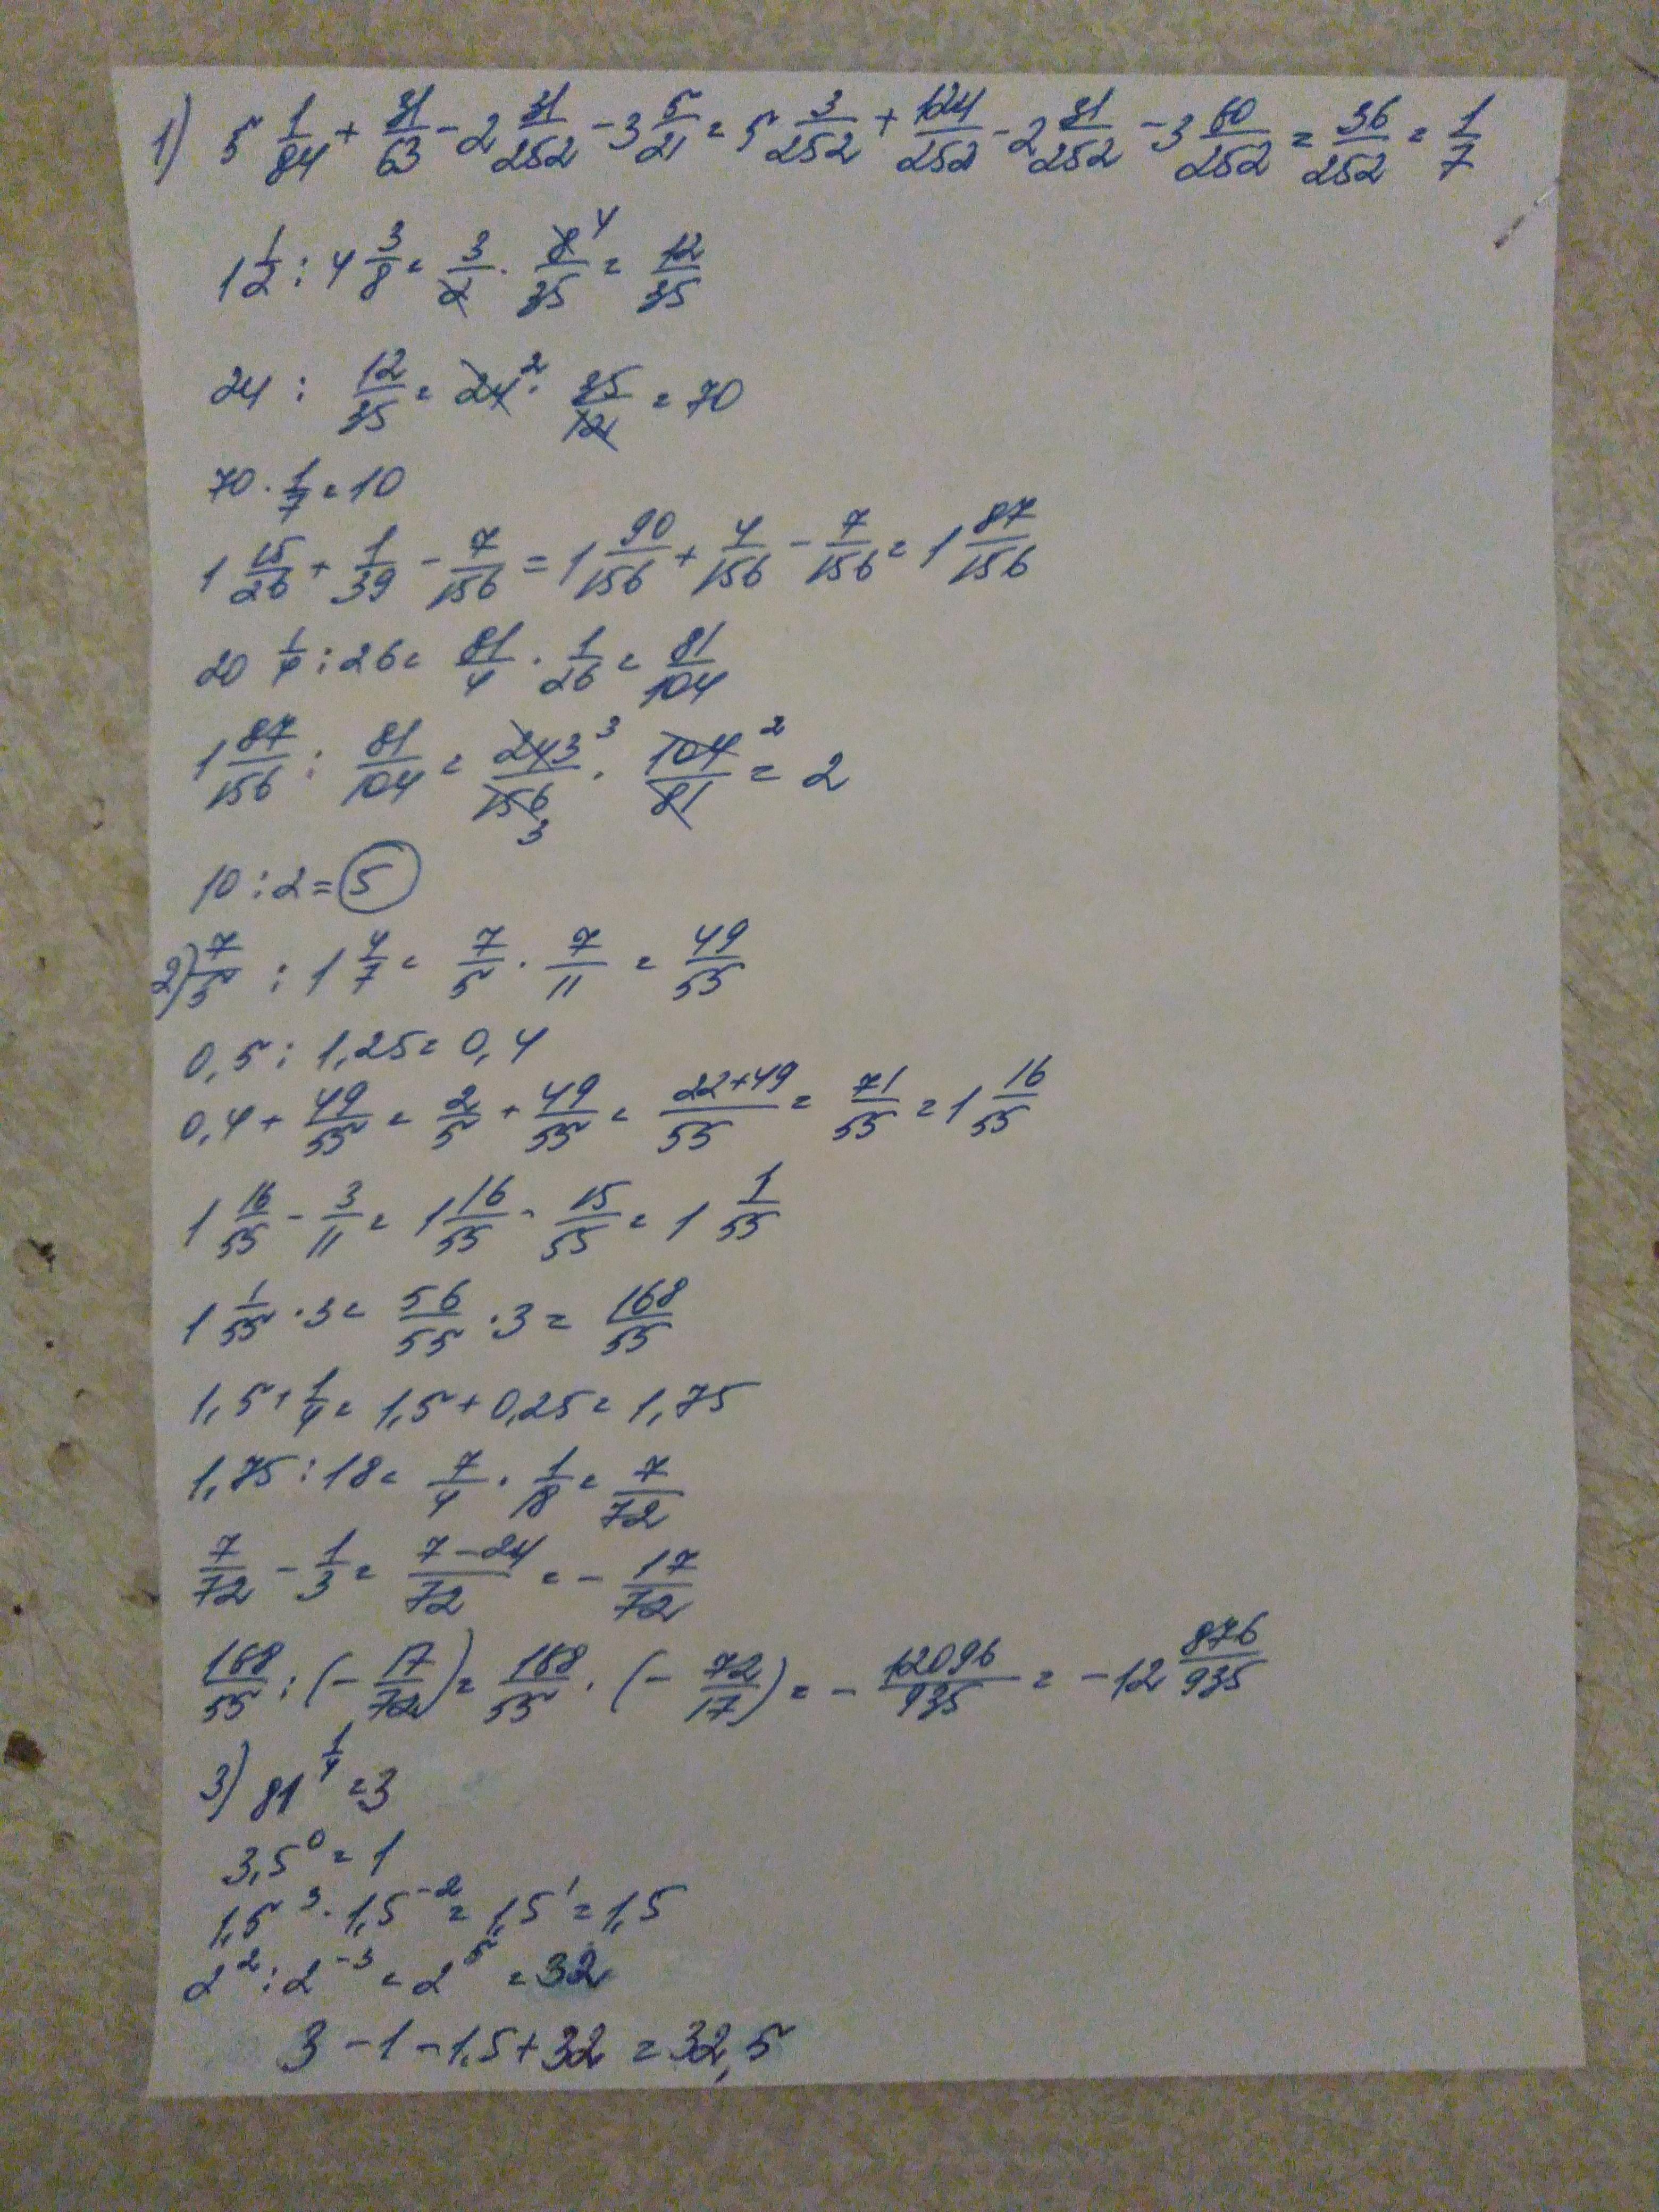 1) 5 1/84 + 31/63 - 2 31/252 - 3 5/21 = 5 3/252 + 124/252 - 2 31/252 - 3 60/252 = 36/252 = 1/7
1 1/2 : 4 3/8 = 3/2 · 8/35 4 = 12/35
24 : 12/35 = 24 2 · 35/12 = 70
70 · 1/7 = 10
1 15/26 + 1/39 - 7/156 = 1 90/156 + 4/156 - 7/156 = 1 87/156
20 1/4 : 26 = 81/4 · 1/26 = 81/104
1 87/156 : 81/104 = 243 3/156 3 · 104 2/81 = 2
10 : 2 = 5
2) 7/5 : 1 4/7 = 7/5 · 7/11 = 49/55
0,5 : 1,25 = 0,4
0,4 + 49/55 = 2/5 + 49/55 = 22+49/55 = 71/55 = 1 16/55
1 16/55 - 3/11 = 1 16/55 - 15/55 = 1 1/55
1 1/55 · 3 = 56/55 · 3 = 168/55
1,5 + 1/4 = 1,5 + 0,25 = 1,75
1,75 : 18 = 7/4 · 1/18 = 7/72
7/72 - 1/3 = 7-24/72 = - 17/72
168/55 : (- 17/72) = 168/55 · (- 72/17) = - 12096/935 = -12 876/935
3) 81^1/4 = 3
3,5^0 = 1
1,5^3 · 1,5^-2 = 1,5^1 = 1,5
2^2 : 2^-3 = 2^5 = 32
3 - 1 - 1,5 + 32 = 32,5